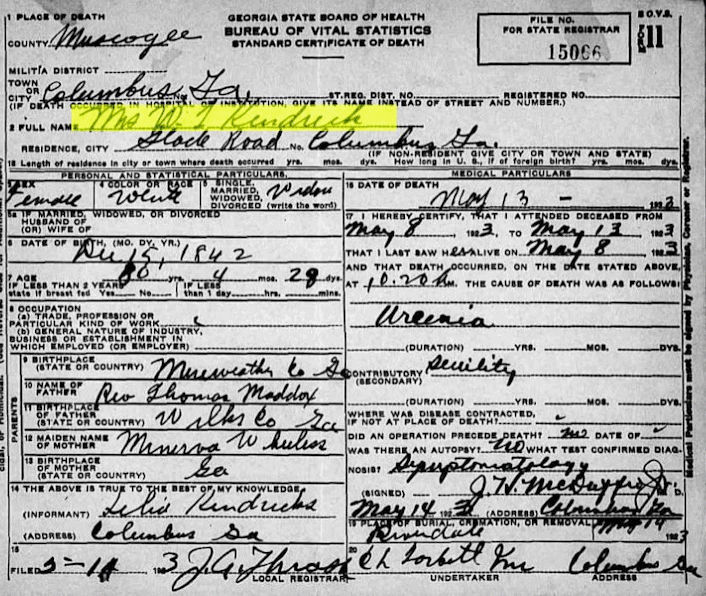 1 PLACE OF DEATH
GEORGIA STATE BOARD OF HEALTH
BUREAU OF VITAL STATISTICS
STANDARD CERTIFICATE OF DEATH
FILE NO.
FOR STATE REGISTRAR
15066
B.O.V.S.
11
COUNTY Muscogee
MILITIA DISTRICT
TOWN OR CITY Columbus, Ga. No. ST. REG. DIST. NO. REGISTERED NO.
(IF DEATH OCCURRED IN HOSPITAL OR INSTITUTION, GIVE ITS NAME INSTEAD OF STREET AND NUMBER.)
2 FULL NAME Mrs W. T. Kendrick
RESIDENCE, CITY Road No. Columbus Ga.
(IF NON-RESIDENT GIVE CITY OR TOWN AND STATE)
Length of residence in city or town where death occurred yrs. mos. ds. How long in U. S., if of foreign birth? yrs. mos. dys.
PERSONAL AND STATISTICAL PARTICULARS.
MEDICAL PARTICULARS
SEX Female
4 COLOR OR RACE White
5 SINGLE, MARRIED, WIDOWED, DIVORCED (write the word) Widow
5a IF MARRIED, WIDOWED, OR DIVORCED
HUSBAND OF
(OR) WIFE OF
6 DATE OF BIRTH, (MO. DY. YR.)
Dec 15, 1842
7 AGE 80 yrs. 4 mos. 28 dys.
IF LESS THAN 2 YEARS state if breast fed Yes No IF LESS than 1 day hrs. mins.
8 OCCUPATION
(a) TRADE, PROFESSION OR PARTICULAR KIND OF WORK
(b) GENERAL NATURE OF INDUSTRY, BUSINESS OR ESTABLISHMENT IN WHICH EMPLOYED (OR EMPLOYER)
PARENTS
9 BIRTHPLACE (STATE OR COUNTRY) Meriweather Co Ga
10 NAME OF FATHER Rev Thomas Maddox
11 BIRTHPLACE OF FATHER (STATE OR COUNTRY) Wilks Co Ga
12 MAIDEN NAME OF MOTHER Minerva Wheless
13 BIRTHPLACE OF MOTHER (STATE OR COUNTRY) Ga
14 THE ABOVE IS TRUE TO THE BEST OF MY KNOWLEDGE,
(INFORMANT) Kendricks
(ADDRESS) Columbus Ga
15
FILED 5-14 1923 J. A. Thrash
LOCAL REGISTRAR
16 DATE OF DEATH
May 13 - 1923
17 I HEREBY CERTIFY, THAT I ATTENDED DECEASED FROM
May 8, 1923, TO May 13, 1923
THAT I LAST SAW Her ALIVE ON May 8 1923
AND THAT DEATH OCCURRED, ON THE DATE STATED ABOVE,
AT 10.20 THE CAUSE OF DEATH WAS AS FOLLOWS:
Uremia
(DURATION) YRS. MOS. DYS.
CONTRIBUTORY (SECONDARY) Senility
(DURATION) YRS. MOS. DYS.
WHERE WAS DISEASE CONTRACTED, IF NOT AT PLACE OF DEATH?
DID AN OPERATION PRECEDE DEATH? no DATE OF
WAS THERE AN AUTOPSY? NO WHAT TEST CONFIRMED DIAGNOSIS? Symptomatology
(SIGNED) J. W. McDuffie, Jr. M. D.
May 14 1923 (ADDRESS) Columbus Ga
19 PLACE OF BURIAL, CREMATION, OR REMOVAL
Riverdale May 14 1923
20 Columbus Ga
UNDERTAKER ADDRESS
Medical Particulars must be signed by Physician, Coroner or Registrar.